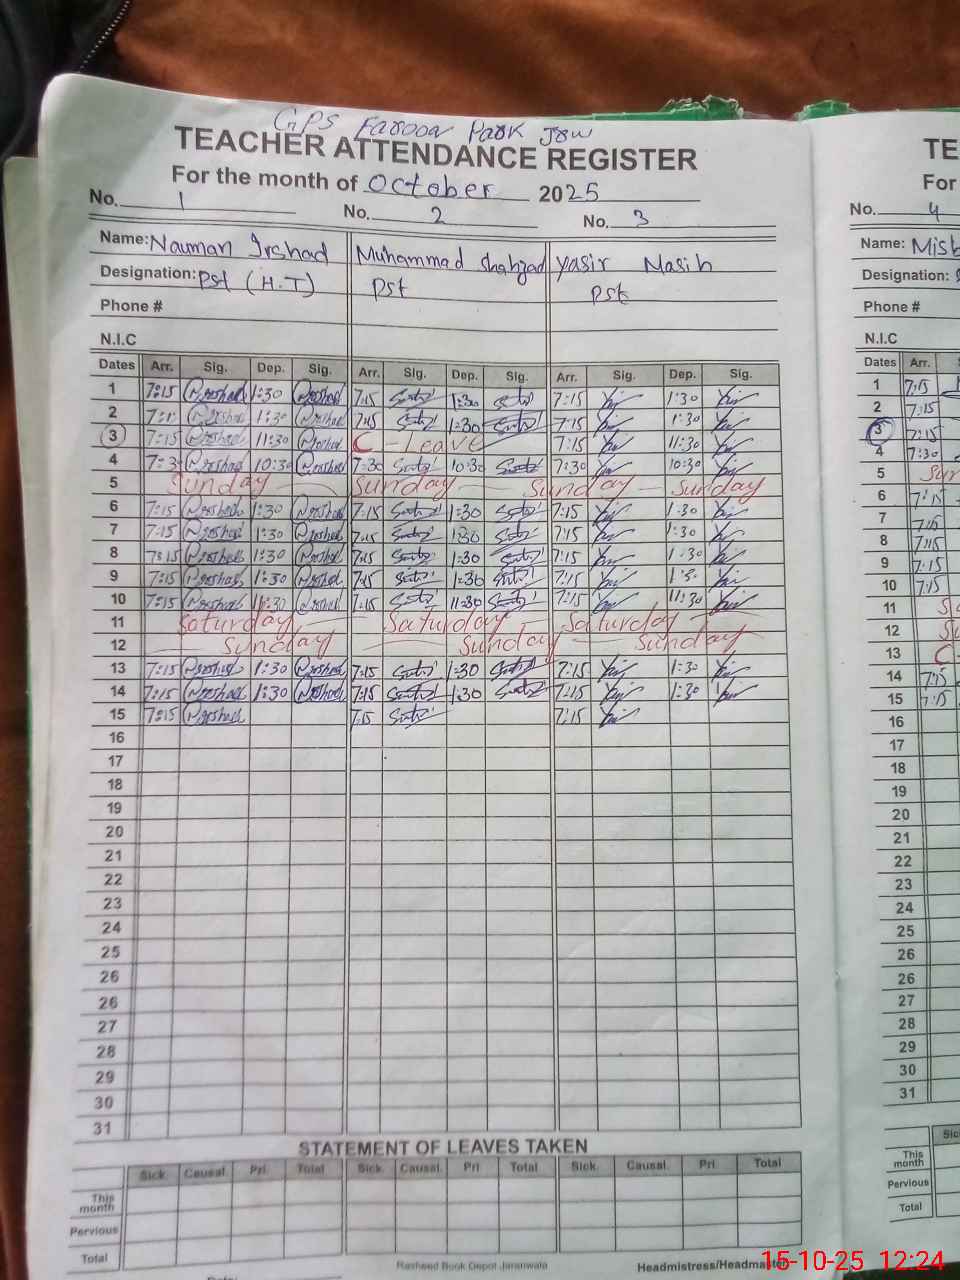 GPS Farooq Park JRW
TEACHER ATTENDANCE REGISTER
For the month of October 2025
No. 1 No. 2 No. 3
Name: Nauman Irshad Muhammad Shahzad Yasir Masih
Designation: Pst (H.T) Pst Pst
Phone #
N.I.C
Dates Arr. Sig. Dep. Sig. Arr. Sig. Dep. Sig. Arr. Sig. Dep. Sig.
1 7:15 1:30 7:15 1:30 7:15 1:30
2 7:15 1:30 7:15 1:30 7:15 1:30
3 7:15 11:30 C - Leave 7:15 11:30
4 7:3 10:30 7:30 10:30 7:30 10:30
5 Sunday Sunday Sunday Sunday
6 7:15 1:30 7:15 1:30 7:15 1:30
7 7:15 1:30 7:15 1:30 7:15 1:30
8 1:30 7:15 1:30 7:15 1:30
9 7:15 1:30 7:15 1:30 7:15 1:30
10 7:15 11:30 7:15 11:30 7:15 11:30
11 Saturday Saturday Saturday
12 Sunday Sunday Sunday
13 7:15 1:30 7:15 1:30 7:15 1:30
14 7:15 1:30 7:15 1:30 7:15 1:30
15 7:15 7:15 7:15
16
17
18
19
20
21
22
23
24
25
26
26
27
28
29
30
31
STATEMENT OF LEAVES TAKEN
Sick. Causal. Pri. Total Sick. Causal. Pri Total Sick. Causal. Pri Total
This month
Pervious
Total
Rasheed Book Depot Jaranwala
Headmistress/Headmaster
TE
For
No. 4
Name: Misb
Designation:
Phone #
N.I.C
Dates Arr.
1 7:15
2 7:15
3 7:15
4 7:30
5 Sun
6 7:15
7 7:15
8 7:15
9 7:15
10 7:15
11 Sa
12 Su
13 C
14 7:15
15 7:15
16
17
18
19
20
21
22
23
24
25
26
26
27
28
29
30
31
Sic
This month
Pervious
Total
15-10-25 12:24